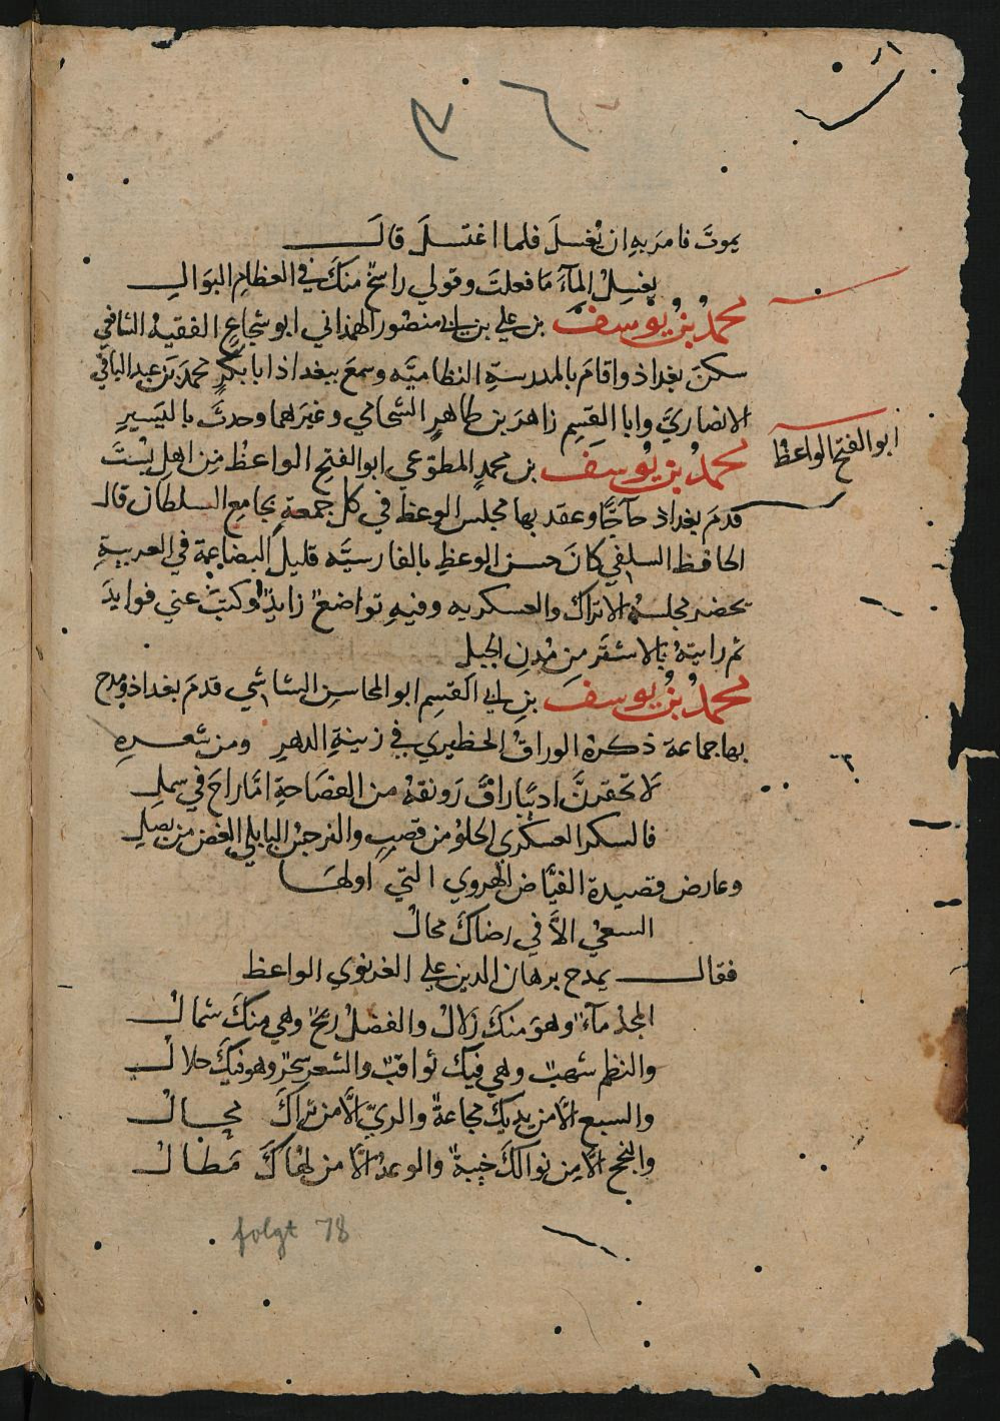 يموتَ فامَر بهِ ان يُغسلَ فلما اغتسلَ قالَ
يغسِلُ المآءُ مَا فعلتَ وقولي راسخٌ منكَ في العظامِ البوَالي
محمدُ بنُ يوُسفَ بن علي بن ابي منصُور الهمذاني ابو شجاعٍ الفقيهُ الشافعي
سكنَ بغداذ واقامَ بالمدرسةِ النظاميَّه وسمعَ ببغداذ ابا بكرٍ محمدَ بنَ عبد الباقي
الانصاريَّ وابا القسِم زاهرَ بن طاهرٍ الشحامي وغيرَهما وحدثَ باليَسيرِ
ابو الفتح الواعظُ
محمدُ بنُ يوُسفَ بن محمدٍ المطوّعي ابو الفتحِ الواعظُ مِن اهلِ بُستَ
قدمَ بغداذ حآجًّا وعقد بها مجلس الوعظ في كل جمعةٍ بجامعِ السلطان قال
الحافظ السلفي كانَ حسنَ الوعظِ بالفارسيَّه قليلَ البضاعة في العربيةِ
يحضر مجلسهُ الاتراكُ والعسكريه وفيهِ تواضعٌ زايدٌ وكتبَ عني فوايدَ
ثم رايتهُ بالاشتَر مِن مُدنِ الجبلِ
محمدُ بنُ يوُسفَ بنِ ابي القسِم ابو المحاسن الشاشي قدمَ بغداذ ومدح
بها جماعة ذكرهُ الوراقُ الحظيري في زينةِ الدهرِ ومن شعرهِ
لا تحقرنَّ اديبًا راقَ رَونقهُ من الفصَاحةِ امّا راحَ في سملِ
فالسكر العسكري الحلوُ من قصبٍ والنرجسُ البابلي الغض من بصلِ
وعارض قصيدة الفيَّاض الهروي التي اولها
السعيُ الاَّ في رضاكَ محالُ
فقال يمدح برهان الدين علي الغزنوي الواعظ
المجدُ مآءٌ وهوَ منكَ زلالُ والفضلُ ريحٌ وهي منكَ شمالُ
والنظم شهبٌ وهي فيك ثواقبٌ والشعر سحرٌ وهو فيكَ حلالُ
والسبع الاَّ من يديك مجاعةٌ والريّ الاَّ من ثراكَ مجالُ
والنجح الاَّ مِن نوالكَ خيبةٌ والوعدُ الاَّ من لهاكَ مَطالُ
folgt 78